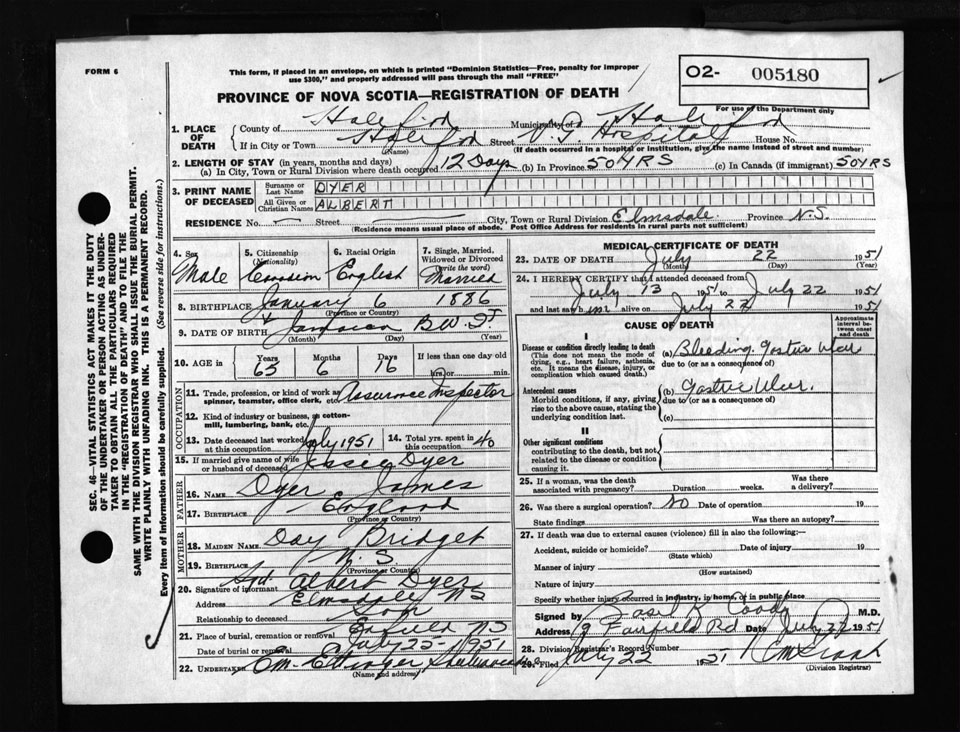 FORM 6
This form, if placed in an envelope, on which is printed "Dominion Statistics—Free, penalty for improper
use $300," and properly addressed will pass through the mail "FREE"
O2- 005180
PROVINCE OF NOVA SCOTIA—REGISTRATION OF DEATH
For use of the Department only
1. PLACE OF DEATH
County of Halifax Municipality of Halifax
If in City or Town Halifax Street V.G. Hospital House No.
(Name) (If death occurred in a hospital or institution, give the name instead of street and number)
2. LENGTH OF STAY (in years, months and days)
(a) In City, Town or Rural Division where death occurred 12 Days (b) In Province 50 YRS (c) In Canada (if immigrant) 50 YRS
3. PRINT NAME OF DECEASED
Surname or Last Name DYER
All Given or Christian Names ALBERT
RESIDENCE No. Street City, Town or Rural Division Elmsdale Province N.S.
(Residence means usual place of abode. Post Office Address for residents in rural parts not sufficient)
4. Sex Male
5. Citizenship (Nationality) Canadian
6. Racial Origin English
7. Single, Married, Widowed or Divorced (write the word) Married
8. BIRTHPLACE January 6 1886
(Province or Country)
9. DATE OF BIRTH Jamaica B.W.I.
(Month) (Day) (Year)
10. AGE in Years 65 Months 6 Days 16 If less than one day old
hrs. or min.
OCCUPATION
11. Trade, profession, or kind of work as
spinner, teamster, office clerk, etc. Assurance Inspector
12. Kind of industry or business, as cotton-
mill, lumbering, bank, etc.
13. Date deceased last worked at this occupation July 1951
14. Total yrs. spent in this occupation 40
15. If married give name of wife
or husband of deceased Jessie Dyer
FATHER
16. NAME Dyer James
17. BIRTHPLACE England
(Province or Country)
MOTHER
18. MAIDEN NAME Day Bridget
19. BIRTHPLACE N.S.
(Province or Country)
20. Signature of informant Sgd. Albert Dyer
Address Elmsdale NS
Relationship to deceased Son
21. Place of burial, cremation or removal Enfield NS
Date of burial or removal July 25 - 1951
22. UNDERTAKER Ettinger Shubenacadie
(Name and address)
MEDICAL CERTIFICATE OF DEATH
23. DATE OF DEATH July 22 1951
(Month) (Day) (Year)
24. I HEREBY CERTIFY that I attended deceased from
July 13 1951 to July 22 1951
and last saw him alive on July 22 1951
CAUSE OF DEATH
Approximate interval between onset and death
I
Disease or condition directly leading to death
(This does not mean the mode of
dying, e.g., heart failure, asthenia,
etc. It means the disease, injury, or
complication which caused death.)
(a) Bleeding Gastric Ulcer
due to (or as a consequence of)
Antecedent causes
Morbid conditions, if any, giving
rise to the above cause, stating the
underlying condition last.
(b) Gastric Ulcer.
due to (or as a consequence of)
(c)
II
Other significant conditions
contributing to the death, but not
related to the disease or condition
causing it.
25. If a woman, was the death
associated with pregnancy? Duration weeks. Was there a delivery?
26. Was there a surgical operation? No Date of operation 19
State findings Was there an autopsy?
27. If death was due to external causes (violence) fill in also the following:—
Accident, suicide or homicide? Date of injury 19
(State which)
Manner of injury
(How sustained)
Nature of injury
Specify whether injury occurred in industry, in home, or in public place
Signed by Basil K. Coady M.D.
Address 9 Fairfield Rd Date July 22 1951
28. Division Registrar's Record Number
29. Filed July 22 1951
(Division Registrar)
SEC. 46—VITAL STATISTICS ACT MAKES IT THE DUTY
OF THE UNDERTAKER OR PERSON ACTING AS UNDER-
TAKER TO OBTAIN ALL THE PARTICULARS REQUIRED
IN THE "REGISTRATION OF DEATH" AND TO FILE THE
SAME WITH THE DIVISION REGISTRAR WHO SHALL ISSUE THE BURIAL PERMIT.
WRITE PLAINLY WITH UNFADING INK. THIS IS A PERMANENT RECORD.
Every item of information should be carefully supplied. (See reverse side for instructions.)